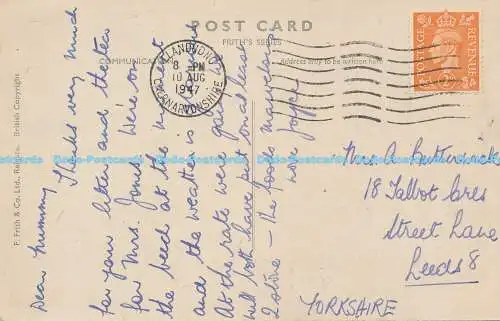 POST CARD
FRITH'S SERIES
COMMUNICATION
Address only to be written here
POSTAGE
REVENUE
LLANDUDNO
8 - PM
10 AUG
1947
CAERNARVONSHIRE
F. Frith & Co. Ltd., Reigate.
British Copyright
Dear Mummy, Thanks very much
for your letter and the tea
for Mrs. Jones. We're on
the beach at the moment
and the weather is grand.
At the rate we're going we
will both have put on at least
2 stone - The food's marvelous
love Joyce
Mrs. A. Butterwick
18 Talbot Cres
Street Lane
Leeds 8
YORKSHIRE
Dodo-Postcards